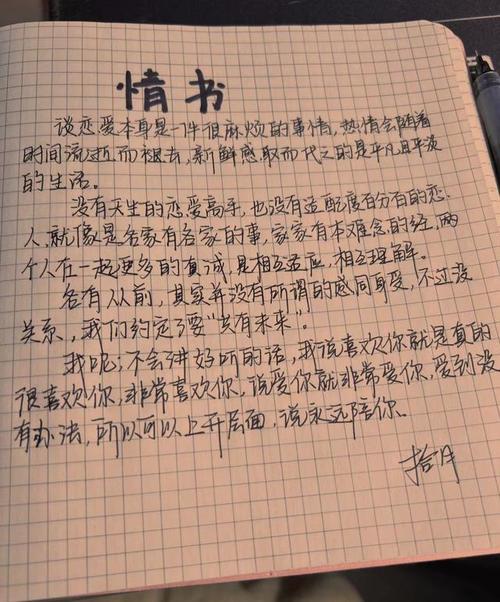 情书
谈恋爱本身是一件很麻烦的事情,热情会随着
时间流逝而褪去,新鲜感取而代之的是平凡且平淡
的生活。
没有天生的恋爱高手,也没有适配度百分百的恋
人,就像是各家有各家的事,家家有本难念的经,两
个人在一起更多的真诚,是相互适应,相互理解。
各有从前,其实并没有所谓的感同身受,不过没
关系,我们约定了要“共有未来”。
我呢;不会讲好听的话,我说喜欢你就是真的
很喜欢你,非常喜欢你,说爱你就非常爱你,爱到没
有办法,所以可以上升层面,说永远陪你.
拾月